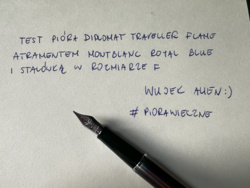 TEST PIÓRA DIPLOMAT TRAVELLER FLAME
ATRAMENTEM MONTBLANC ROYAL BLUE
I STALÓWKĄ W ROZMIARZE F
WUJEK ALIEN :)
# PIORAWIECZNE